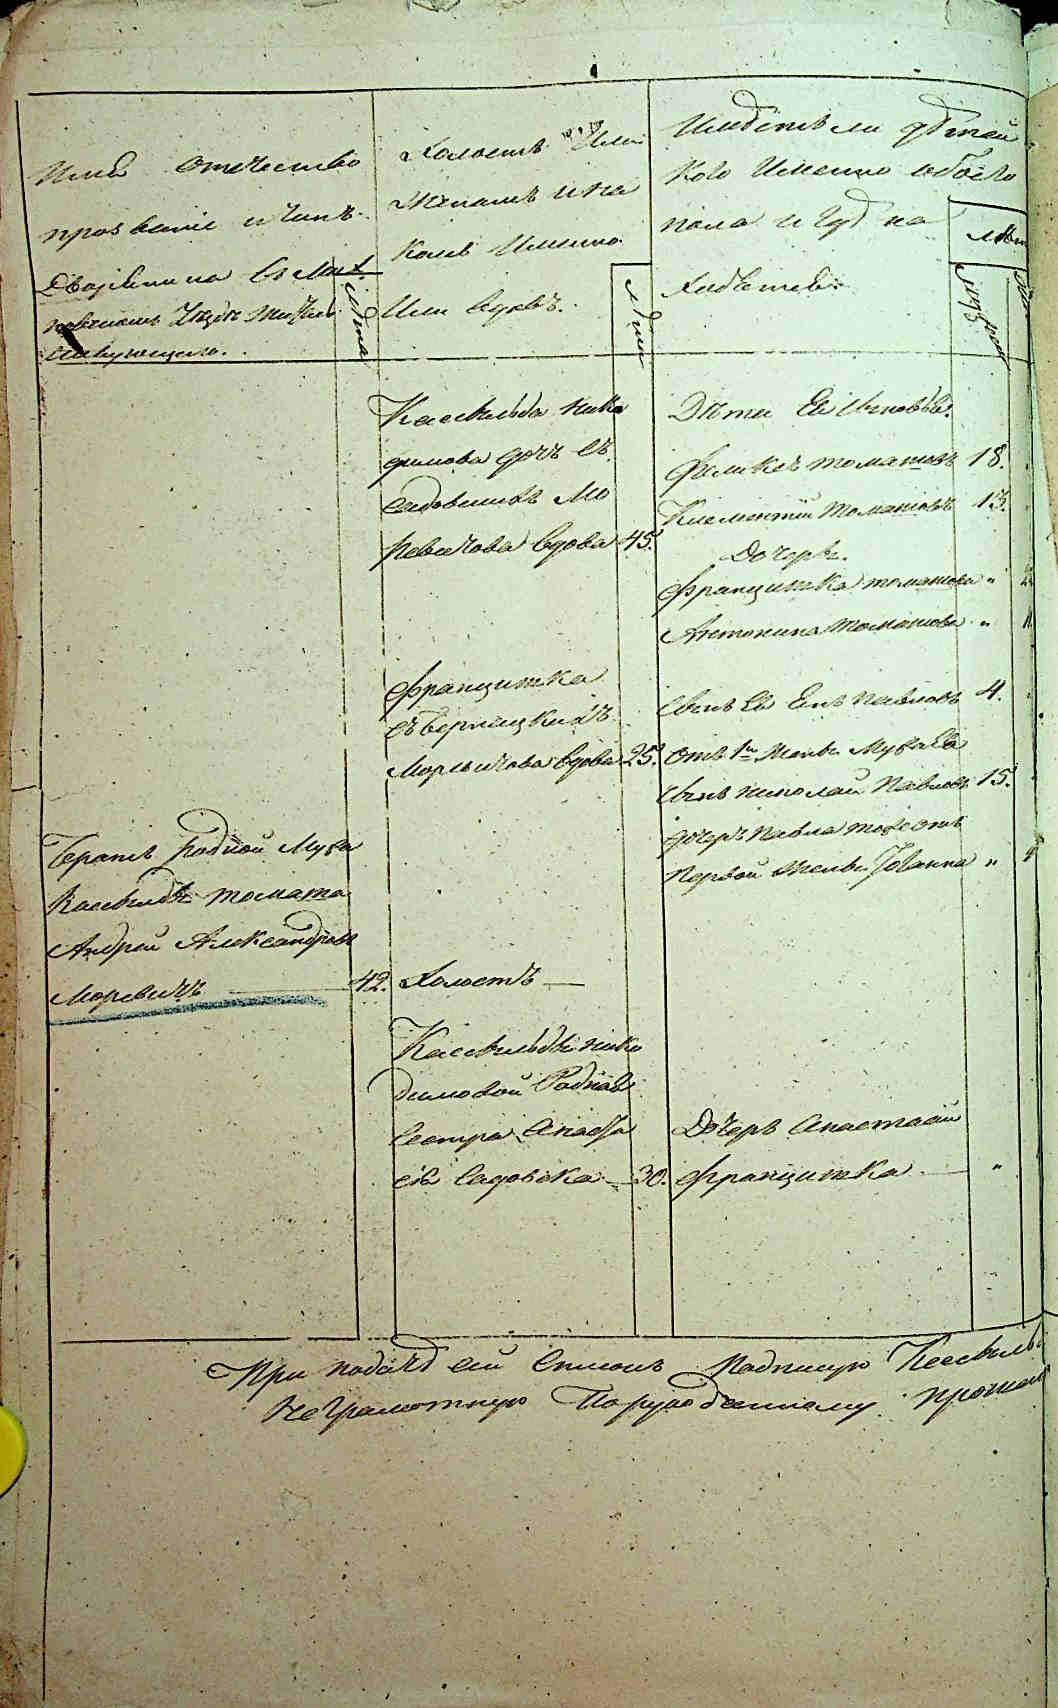 Имя Отечество
прозвание и чинъ
Дворянина въ Мах
новецкомъ Уездѣ Жител
ствующего.
Лѣта
Холостъ Или
Женатъ и на
комъ Именно
Или вдовъ.
Лѣта
Имѣетъ ли дѣтей
кого Именно обоего
пола и гдѣ на
ходятся.
Лѣт
Мужеск
Касвильда Нико
димова дочь съ
Садовских Мо
ревичова вдова 45.
Дѣти Ея Сыновья.
Феликсъ Томашовъ 18.
Клементій Томашовъ 13.
Дочеры.
Францишка Томашова "
Антонина Томашова "
Францишка
съ Берницкихъ
Моревичова вдова 25.
Сынъ Ея Павловъ 4.
отъ 1й Жены Мужа Ея
Сынъ Николай Павловъ 15.
дочерь Павла тоже отъ
Первой Жены Иоанна "
Братъ Родной Мужа
Касвильды Томаша
Андрей Александровъ
Моревичъ 42.
Холостъ
Касвильды Нико
димовой Родная
Сестра Анаста
сія Садовска 30.
Дочерь Анастасіи
Францишка "
При подачѣ сей Списокъ Подписую Касвиль
неграмотную По рукоданному прошен